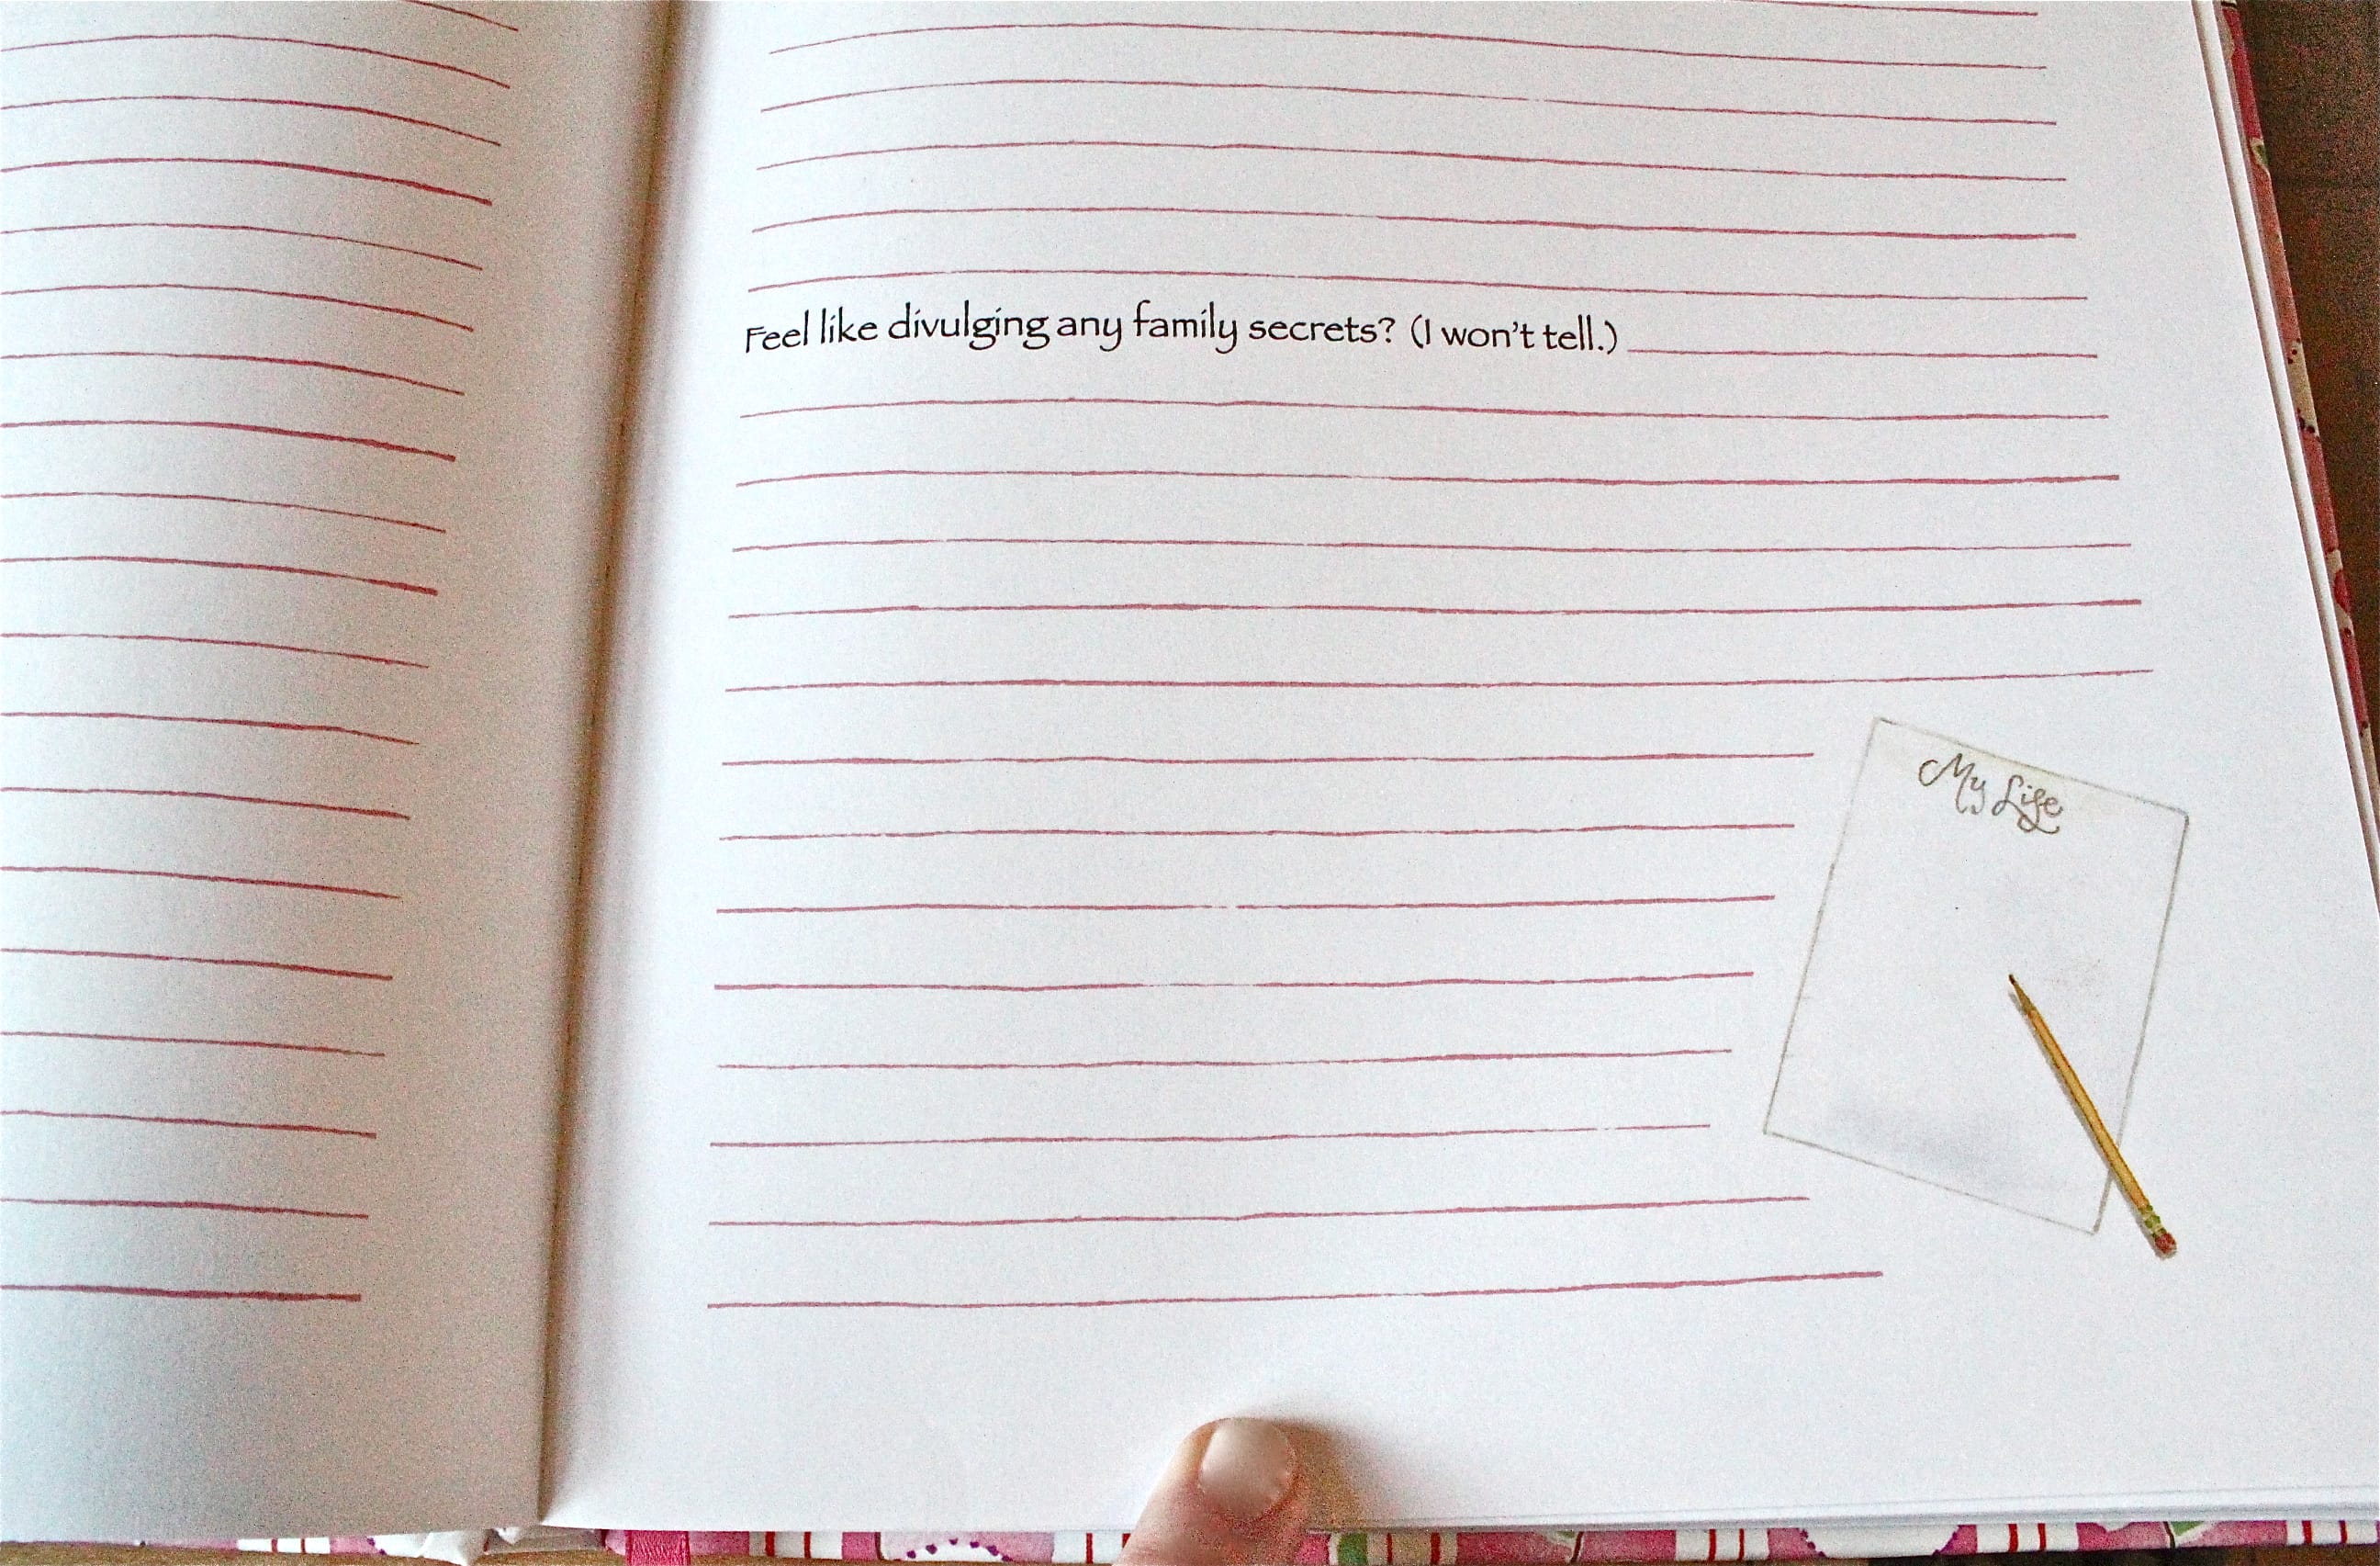 Feel like divulging any family secrets? (I won't tell.)
My Life